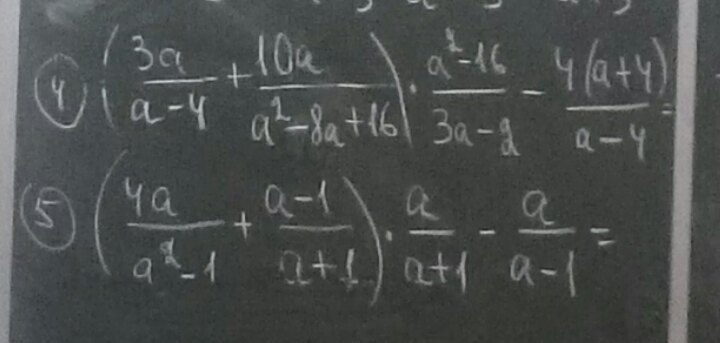 ④ (3a/(a-4) + 10a/(a²-8a+16)) · (a²-16)/(3a-2) - 4(a+4)/(a-4) =
⑤ (4a/(a²-1) + (a-1)/(a+1)) · a/(a+1) - a/(a-1) =